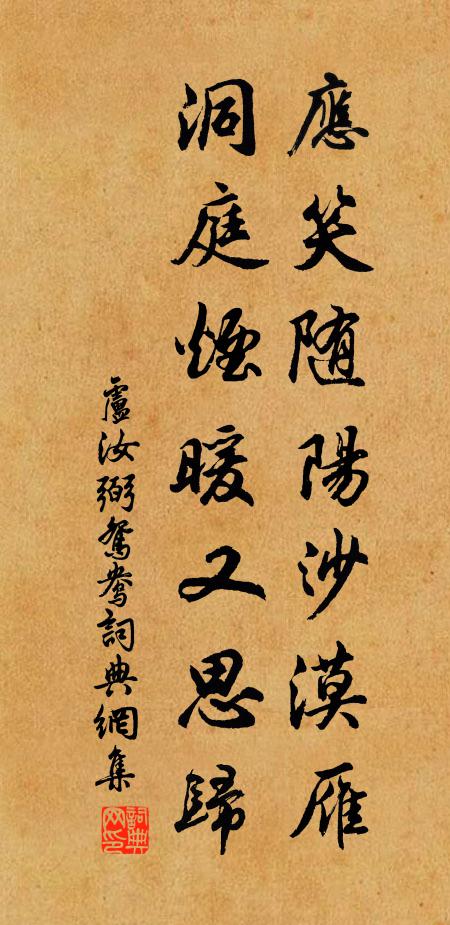 應笑随陽沙漠雁
洞庭煙暖又思歸
盧汝弼鴛鴦詞典網集
詞典网印